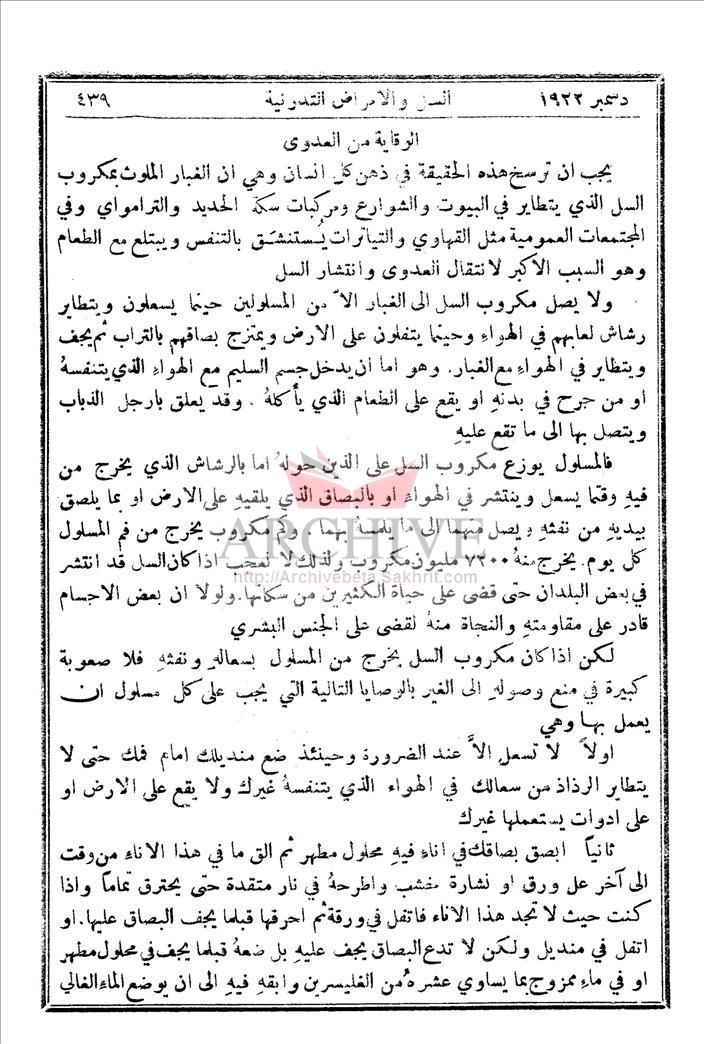 دسمبر ١٩٢٢
السل والامراض التدرنية
٤٣٩
الوقاية من العدوى
يجب ان ترسخ هذه الحقيقة في ذهن كل انسان وهي ان الغبار الملوث بمكروب
السل الذي يتطاير في البيوت والشوارع ومركبات سكة الحديد والتراموای وفي
المجتمعات العمومية مثل القهاوي والتياترات يُستنشق بالتنفس ويبتلع مع الطعام
وهو السبب الاكبر لانتقال العدوى وانتشار السل
ولا يصل مكروب السل الى الغبار الاّ من المسلولين حينما يسعلون ويتطاير
رشاش لعابهم في الهواء وحينما يتفلون على الارض ويمتزج بصاقهم بالتراب ثم يجف
ويتطاير في الهواءِ مع الغبار. وهو اما ان يدخل جسم السليم مع الهواءِ الذي يتنفسهُ
او من جرح في بدنهِ او يقع على الطعام الذي يأكلهُ . وقد يعلق بارجل الذباب
ويتصل بها الى ما تقع عليهِ
فالمسلول يوزع مكروب السل على الذين حولهُ اما بالرشاش الذي يخرج من
فيهِ وقتما يسعل وينتشر في الهواءِ او بالبصاق الذي يلقيهِ على الارض او بما يلصق
بيديهِ من نفثهِ ويصل منهما الى ما يلمسهُ بهما . وكم مكروب يخرج من فم المسلول
كل يوم. يخرج منهُ ٧٢٠٠ مليون مكروب ولذلك لا نعجب اذا كان السل قد انتشر
في بعض البلدان حتى قضى على حياة الكثيرين من سكانها. ولولا ان بعض الاجسام
قادر على مقاومتهِ والنجاة منهُ لقضى على الجنس البشري
لكن اذا كان مكروب السل يخرج من المسلول بسعالهِ ونفثهِ فلا صعوبة
كبيرة في منع وصولهِ الى الغير بالوصايا التالية التي يجب على كل مسلول ان
يعمل بها وهي
اولاً لا تسعل الاَّ عند الضرورة وحينئذ ضع منديلك امام فمك حتى لا
يتطاير الرذاذ من سعالك في الهواء الذي يتنفسهُ غيرك ولا يقع على الارض او
على ادوات يستعملها غيرك
ثانياً ابصق بصاقك في اناءٍ فيهِ محلول مطهر ثم الق ما في هذا الاناءِ من وقت
الى آخر على ورق او نشارة خشب واطرحهُ في نار متقدة حتى يحترق تماماً واذا
كنت حيث لا تجد هذا الاناء فاتفل في ورقة ثم احرقها قبلما يجف البصاق عليها. او
اتفل في منديل ولكن لا تدع البصاق يجف عليهِ بل ضعهُ قبلما يجف في محلول مطهر
او في ماءٍ ممزوج بما يساوي عشرهُ من الغليسرين وابقهِ فيهِ الى ان يوضع الماء الغالي
ARCHIVE
http://Archivebeta.Sakhrit.com